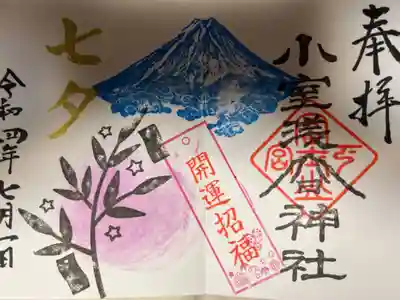 奉拝
小室淺間神社
開運招福
七夕
令和四年七月一日